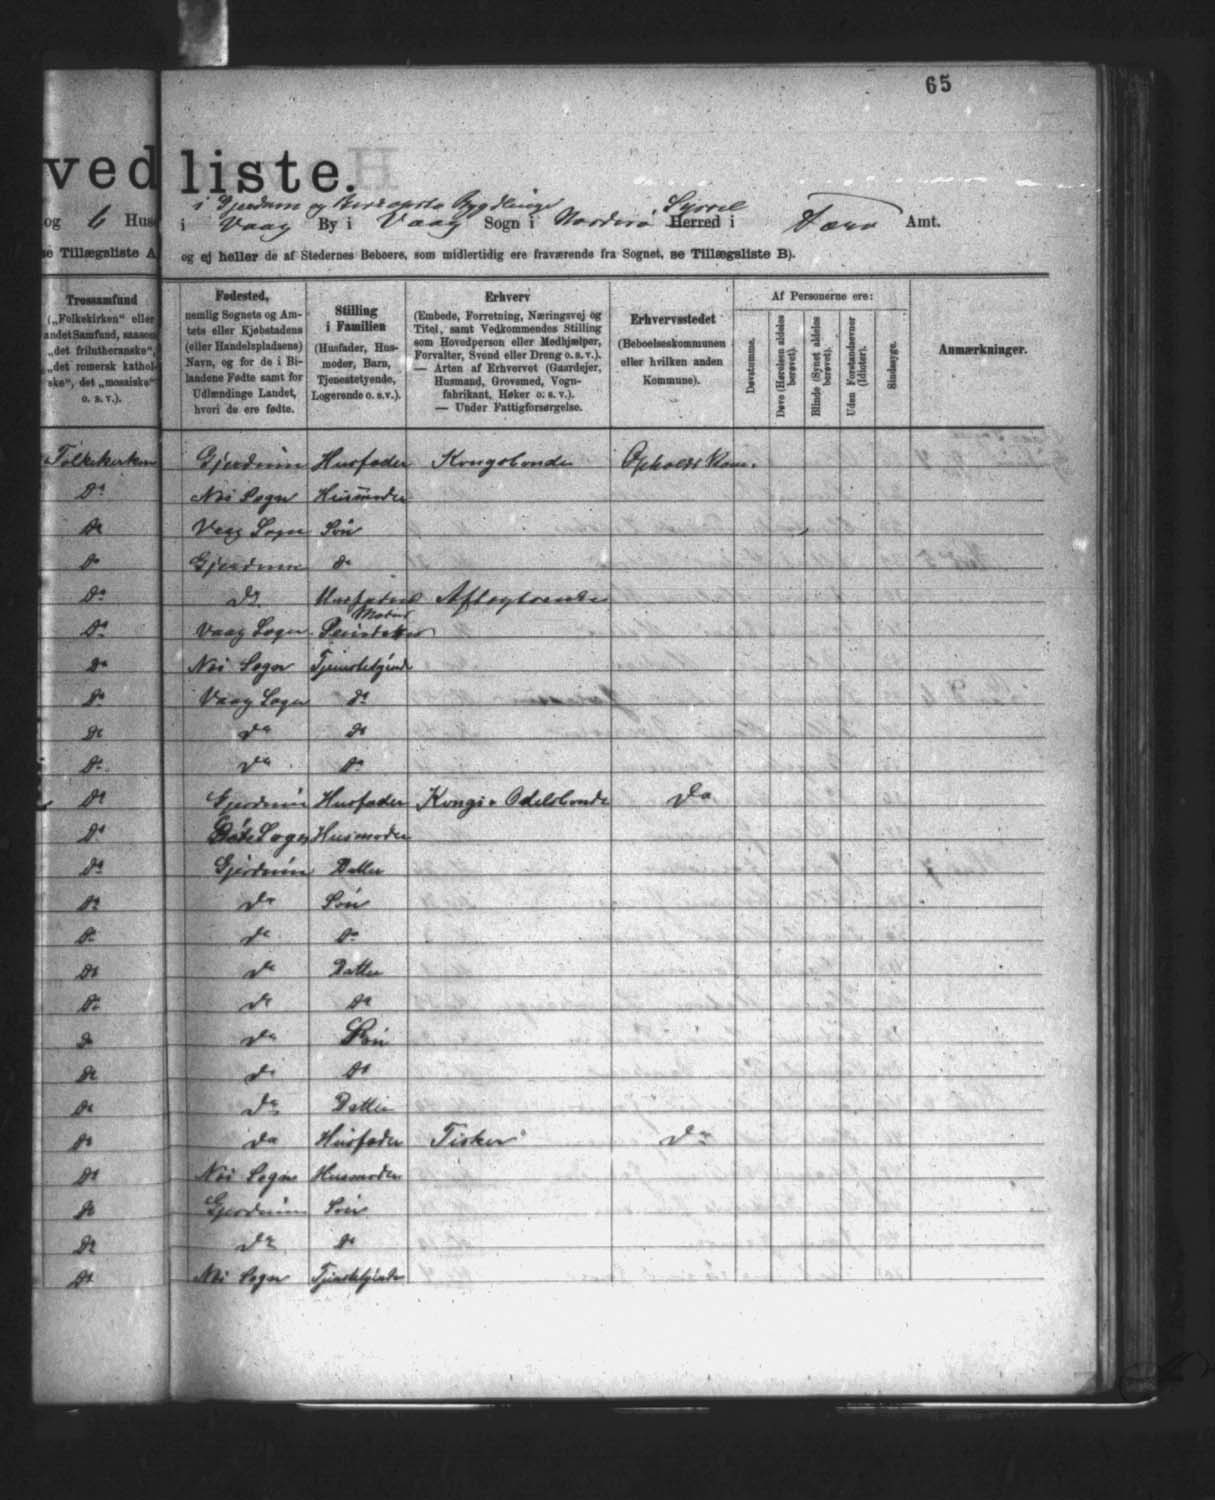 65
ved liste.
i Gjerdum og Bygdlinge
og 6 Huse i Vaag By i Vaag Sogn i Norderø Herred i Syssel Færø Amt.
se Tillægsliste A og ej heller de af Stedernes Beboere, som midlertidig ere fraværende fra Sognet, se Tillægsliste B).
Trossamfund
(„Folkekirken“ eller
andet Samfund, saasom
„det frilutheranske“,
„det romersk kathol-
ske“, det „mosaiske“
o. s. v.).
Fødested,
nemlig Sognets og Am-
tets eller Kjøbstadens
(eller Handelspladsens)
Navn, og for de i Bi-
landene Fødte samt for
Udlændinge Landet,
hvori de ere fødte.
Stilling
i Familien
(Husfader, Hus-
moder, Barn,
Tjenestetyende,
Logerende o. s. v.).
Erhverv
(Embede, Forretning, Næringsvej og
Titel, samt Vedkommendes Stilling
som Hovedperson eller Medhjælper,
Forvalter, Svend eller Dreng o. s. v.).
— Arten af Erhvervet (Gaardejer,
Husmand, Grovsmed, Vogn-
fabrikant, Høker o. s. v.).
— Under Fattigforsørgelse.
Erhvervsstedet
(Beboelseskommunen
eller hvilken anden
Kommune).
Af Personerne ere:
Døvstumme.
Døve (Hørelsen aldeles
berøvet).
Blinde (Synet aldeles
berøvet).
Uden Forstandsevner
(Idioter).
Sindssyge.
Anmærkninger.
Folkekirken Gjerdum Husfader Kongsbonde Opholds Kom.
Do Næs Sogn Husmoder
Do Vaag Sogn Søn
Do Gjerdum do
Do Do Husfaderens Aftægtsmand
Do Vaag Sogn Moder
Do Næs Sogn Tjenestetyende
Do Vaag Sogn do
Do Do do
Do Do do
Do Gjerdum Husfader Konge & Odelsbonde Do
Do Sogn Husmoder
Do Gjerdum Datter
Do Do Søn
Do Do do
Do Do Datter
Do Do do
Do Do Søn
Do Do do
Do Do Datter
Do Do Husfader Fisker Do
Do Næs Sogn Husmoder
Do Gjerdum Søn
Do Do do
Do Næs Sogn Tjenestetyende